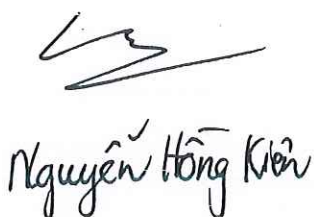 Nguyễn Hồng Kiên